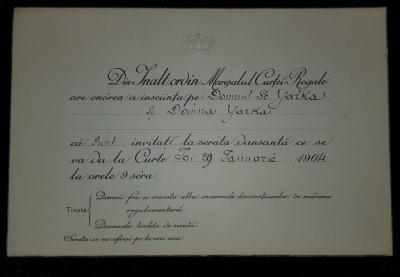 Din Înalt ordin Mareșalul Curței Regale
are onórea a înscința pe Domnul St Yarka
și Domna Yarka
că sunt invitat la serata dansantă ce se
va da la Curte Joi 29 Ianuarie 1904
la orele 9 séra.
Ținuta
Domnii frac și cravata alba, insemnele decorațiunilor, in mărime
regulamentară
Dómnele toaleta de serată
Serata se va sfârși pe la ora una.